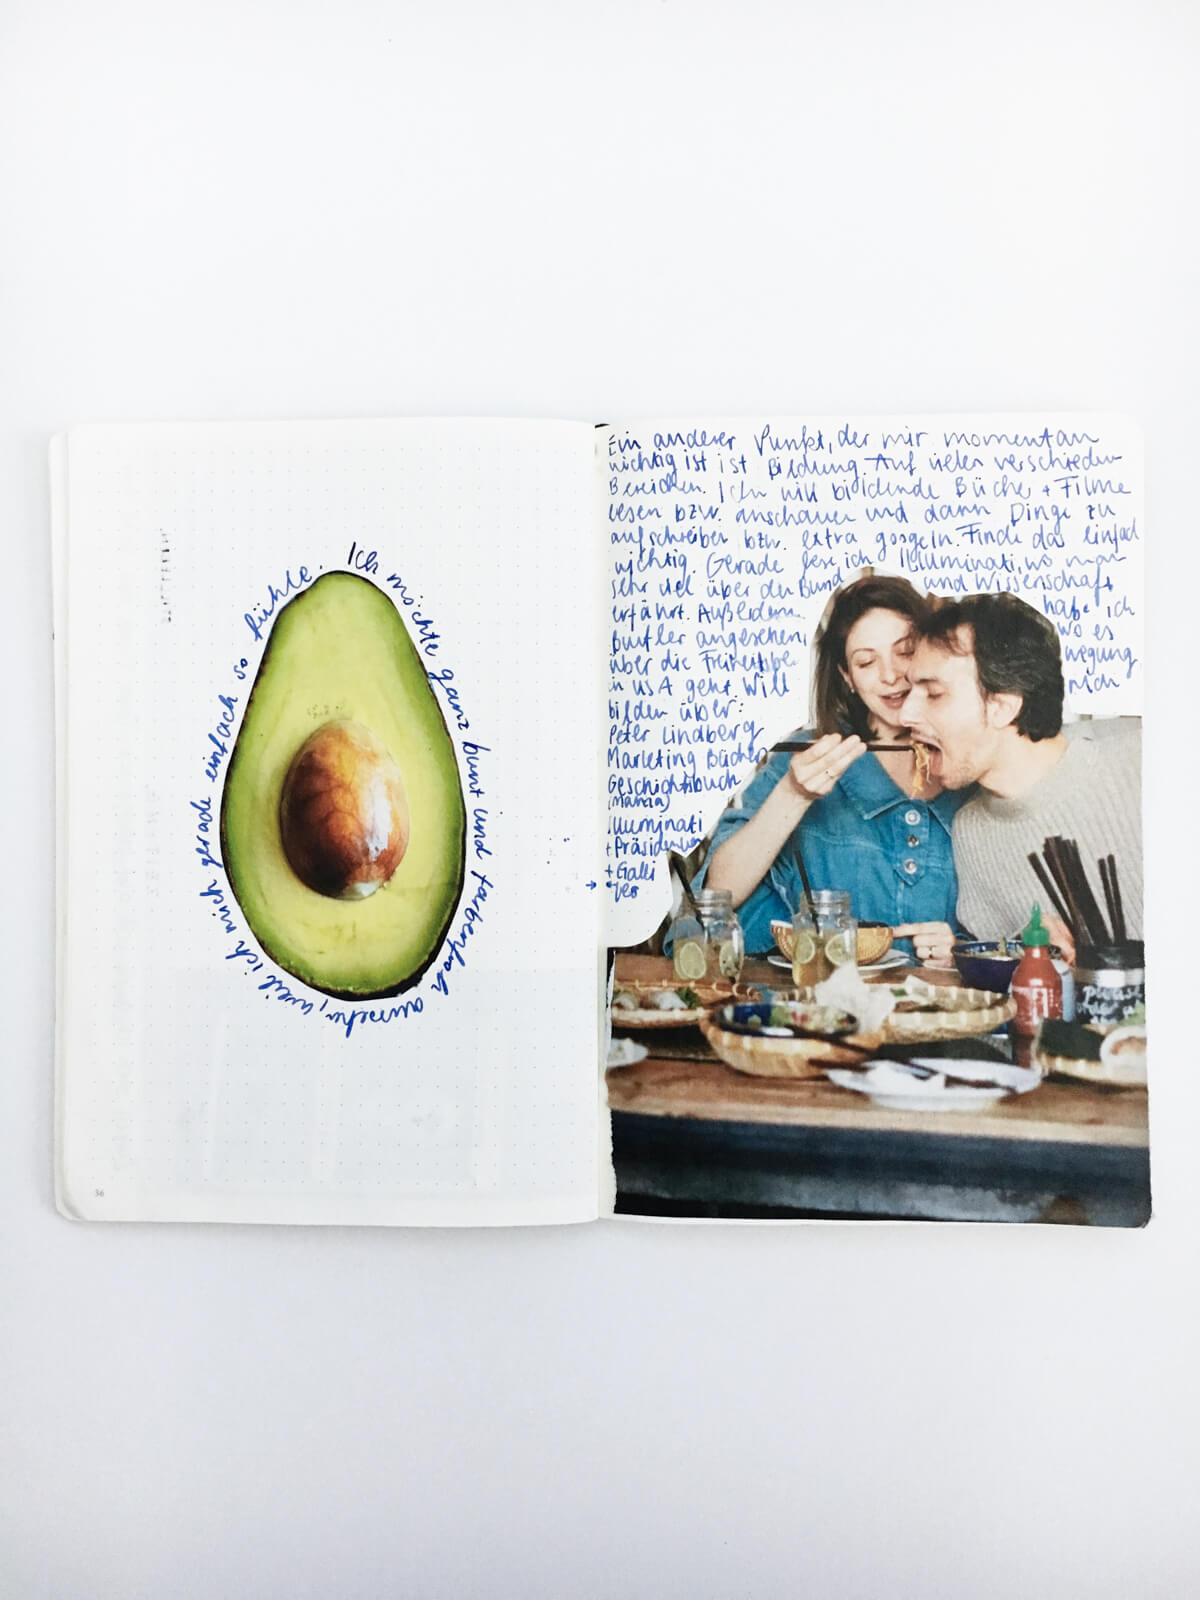 Ich möchte ganz bunt und farbenfroh aussehen, weil ich mich gerade einfach so fühle.
36
Ein anderer Punkt, der mir momentan
wichtig ist ist Bildung. Auf vielen verschieden
Bereichen. Ich will bildende Bücher + Filme
lesen bzw. anschauen und dann Dinge zu
aufschreiben bzw. extra googeln. Finde das einfach
wichtig. Gerade lese ich Illuminati, wo man
sehr viel über den Bund und Wissenschaft
erfährt. Außerdem habe ich
Butler angesehen, wo es
über die Freiheitsbewegung
in USA geht. Will mich
bilden über:
Peter Lindberg
Marketing Bücher
Geschichtsbuch
(Mama)
Illuminati
+ Präsidenten
+ Galli